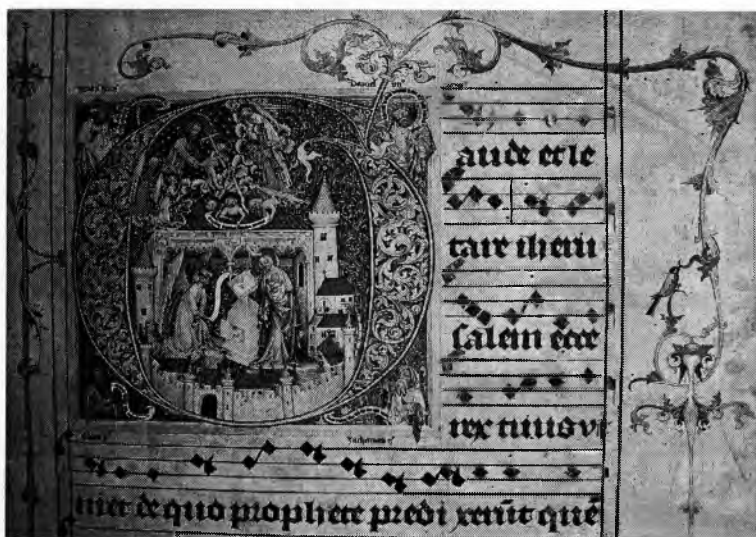 Daniel
aude et le
tare iheru
salem ecce
rex tuus ve
niet de quo prophete predi xerūt quē